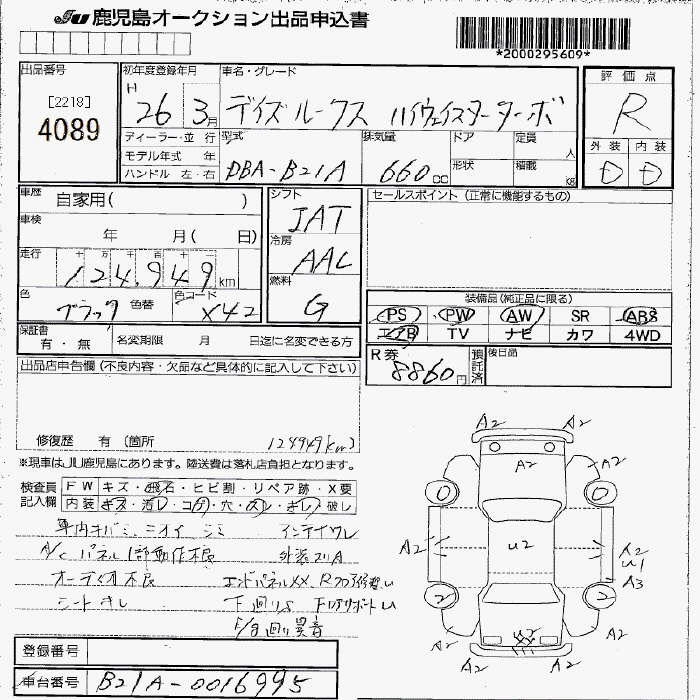 JU 鹿児島オークション出品申込書
*2000295609*
出品番号
[2218]
4089
初年度登録年月
H 26 3月
車名・グレード
デイズルークス ハイウェイスターターボ
評価点
R
外装 内装
D D
ディーラー・並行
モデル年式 年
ハンドル 左・右
型式
DBA-B21A
排気量
660cc
ドア
形状
定員
人
積載
kg
車歴
自家用( )
車検
年 月( 日)
走行
十 万 千 百 十 一
124,949km
色
ブラック
色替
色コード
X42
シフト
IAT
冷房
AAC
燃料
G
セールスポイント(正常に機能するもの)
装備品(純正品に限る)
PS PW AW SR ABS
エアB TV ナビ カワ 4WD
保証書
有・無
名変期限 月 日迄に名変できる方
R券
8860円
預託済
後日品
出品店申告欄(不良内容・欠品など具体的に記入して下さい)
修復歴 有(箇所
124949km)
※現車はJU鹿児島にあります。陸送費は落札店負担となります。
検査員記入欄
FW キズ・飛石・ヒビ割・リペア跡・X要
内装 キズ・汚レ・コゲ・穴・スレ・キレ・破レ
車内キバミ、ニオイ シミ インテイワレ
A/Cパネル1部動作不良 外装スリA
オーディオ不良 エンドパネルXX、Rフロア修歪U
シートキレ 下廻りS FロアサポートU
F/g廻り異音
A2 A2
A2
A2 A2
0 0
A2 U2 A2
U1
A3
2 2
A2 XX A2
A2 A2
登録番号
車台番号
B21A-0016995